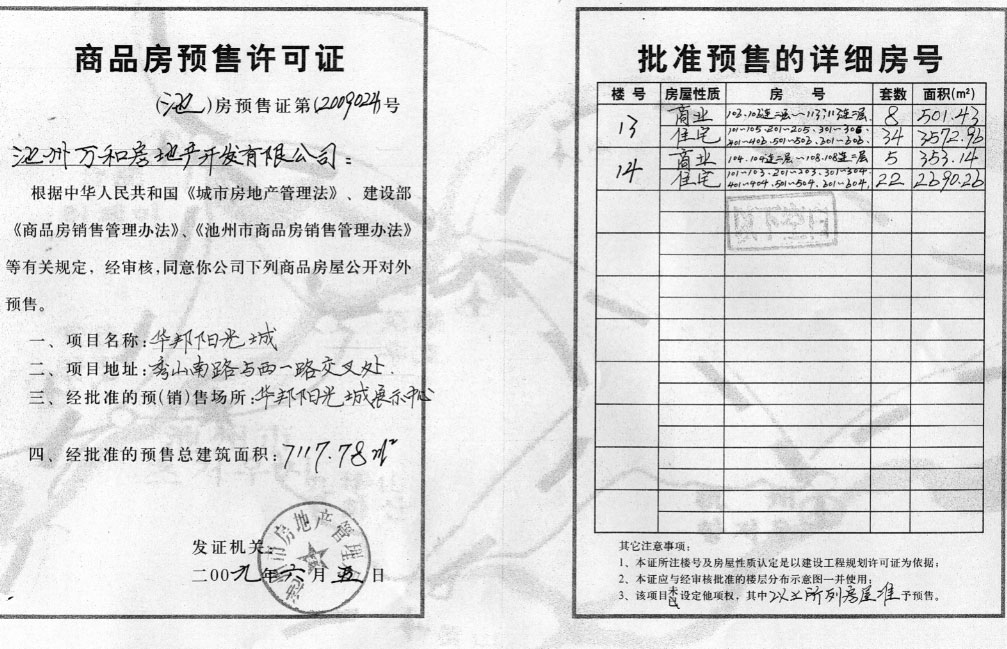 商品房预售许可证
(池)房预售证第(2009024)号
池州万和房地产开发有限公司：
根据中华人民共和国《城市房地产管理法》、建设部
《商品房销售管理办法》、《池州市商品房销售管理办法》
等有关规定，经审核，同意你公司下列商品房屋公开对外
预售。
一、项目名称：华邦阳光城
二、项目地址：秀山南路与西一路交叉处.
三、经批准的预(销)售场所：华邦阳光城展示中心
四、经批准的预售总建筑面积：7117.78㎡
发证机关：
市房地产管理
二00九年六月五日
批准预售的详细房号
楼号 房屋性质 房号 套数 面积(m²)
13 商业 8 501.43
住宅 101~105.201~205.301~306. 34 3572.96
401~406.501~506.
14 商业 104.104连二层~108.108连二层 5 353.14
住宅 101~103.201~203.301~304. 22 2690.26
401~404.501~504.
其它注意事项：
1、本证所注楼号及房屋性质认定是以建设工程规划许可证为依据；
2、本证应与经审核批准的楼层分布示意图一并使用；
3、该项目未设定他项权，其中以上所列房屋准予预售。